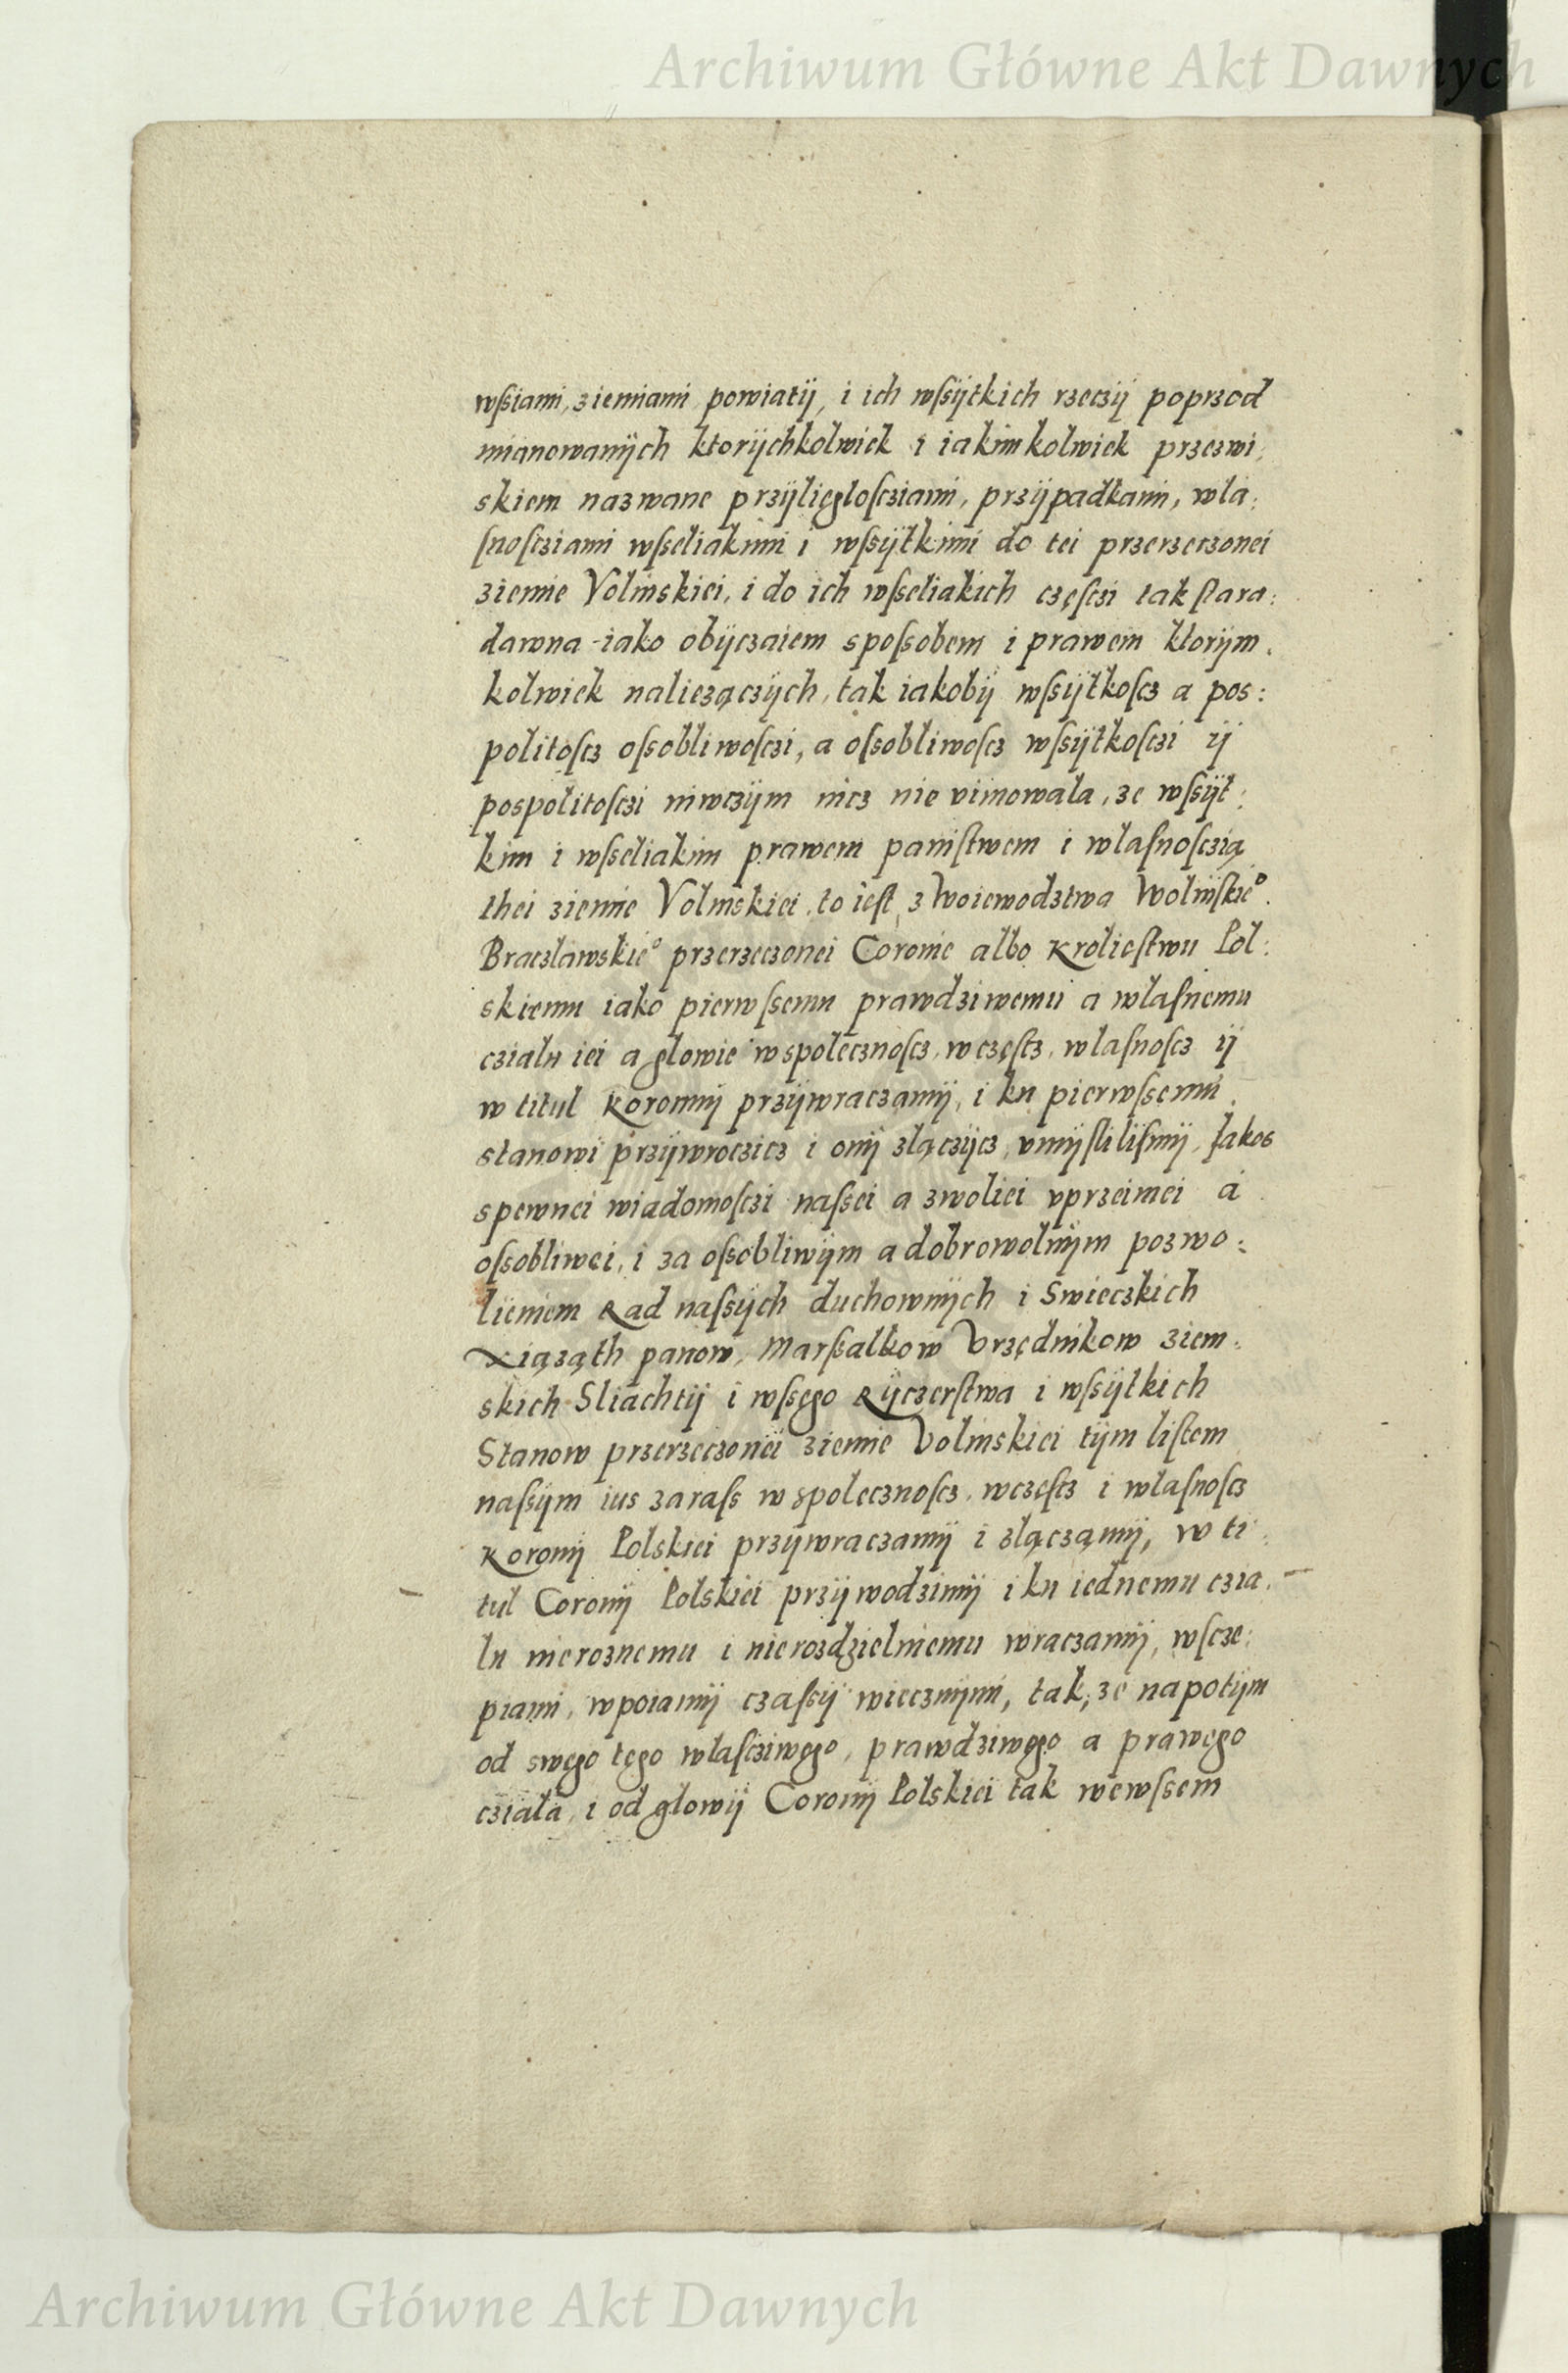 Archiwum Główne Akt Dawnych
wſsiami, ziemiami powiatÿ, i ich wſsÿtkich rzeczÿ poprzod
mianowanÿch ktorÿchkolwiek i iakimkolwiek przezwi:
skiem nazwane przÿliegloſcziami, przÿpadkami, wla:
ſnoſcziami wſseliakimi i wſsÿtkimi do tei przerzeczonei
ziemie Volinskiei, i do ich wſseliakich częſczi tak ſtara:
dawna iako obÿczaiem spoſsobem i prawem ktorÿm.
kolwiek naliezączÿch, tak iakobÿ wſsÿtkoſcz a pos:
politoſcz oſsobliwoſczi, a oſsobliwoſcz wſsÿtkoſczi ÿ
pospolitoſczi niwczÿm nicz nie uimowala, ze wſsÿt:
kim i wſseliakim prawem pańſtwem i wlaſnoſczią
thei ziemie Volinskiei, to ieſt, z Woiewodztwa Wolinſkie°.
Braczlawskie° przerzeczonei Coronie albo Krolieſtwu Pol:
skiemu iako pierwſsemu prawdziwemu a wlaſnemu
czialu iei a glowie wspolecznoſcz, wczęſcz, wlaſnoſcz ÿ
w titul Koronnÿ przÿwraczamÿ, i ku pierwſsemu
stanowi przÿwroczicz i onÿ zlączÿcz, umÿſliliſmÿ, Jakos
spewnei wiadomoſczi naſsei a zwoliei uprzeimei a
oſsobliwei, i za oſsobliwÿm a dobrowolnÿm pozwo:
lieniem Rad naſsÿch duchownÿch i Swieczkich
Xiąząth panow, Marſsalkow Urzędnikow ziem:
skich Sliachtÿ i wſsego Rÿczerſtwa i wſsÿtkich
Stanow przerzeczonei ziemie Volinskiei tÿm liſtem
naſsÿm ius zaraſs w spolecznoſcz, wczęſcz i wlaſnoſcz
Koronÿ Polskiei przÿwraczamÿ i zlączamÿ, w ti:
tul Coronÿ Polskiei przÿwodzimÿ i ku iednemu czia:
lu nieroznemu i nierozdzielniemu wraczamÿ, wſcze:
piami, wpoiamÿ czaſsÿ wiecznÿmi, tak, ze napotÿm
od swego tego wlaſcziwego, prawdziwego a prawego
cziala, i od glowÿ Coronÿ Polskiei tak wewſsem
Archiwum Główne Akt Dawnych